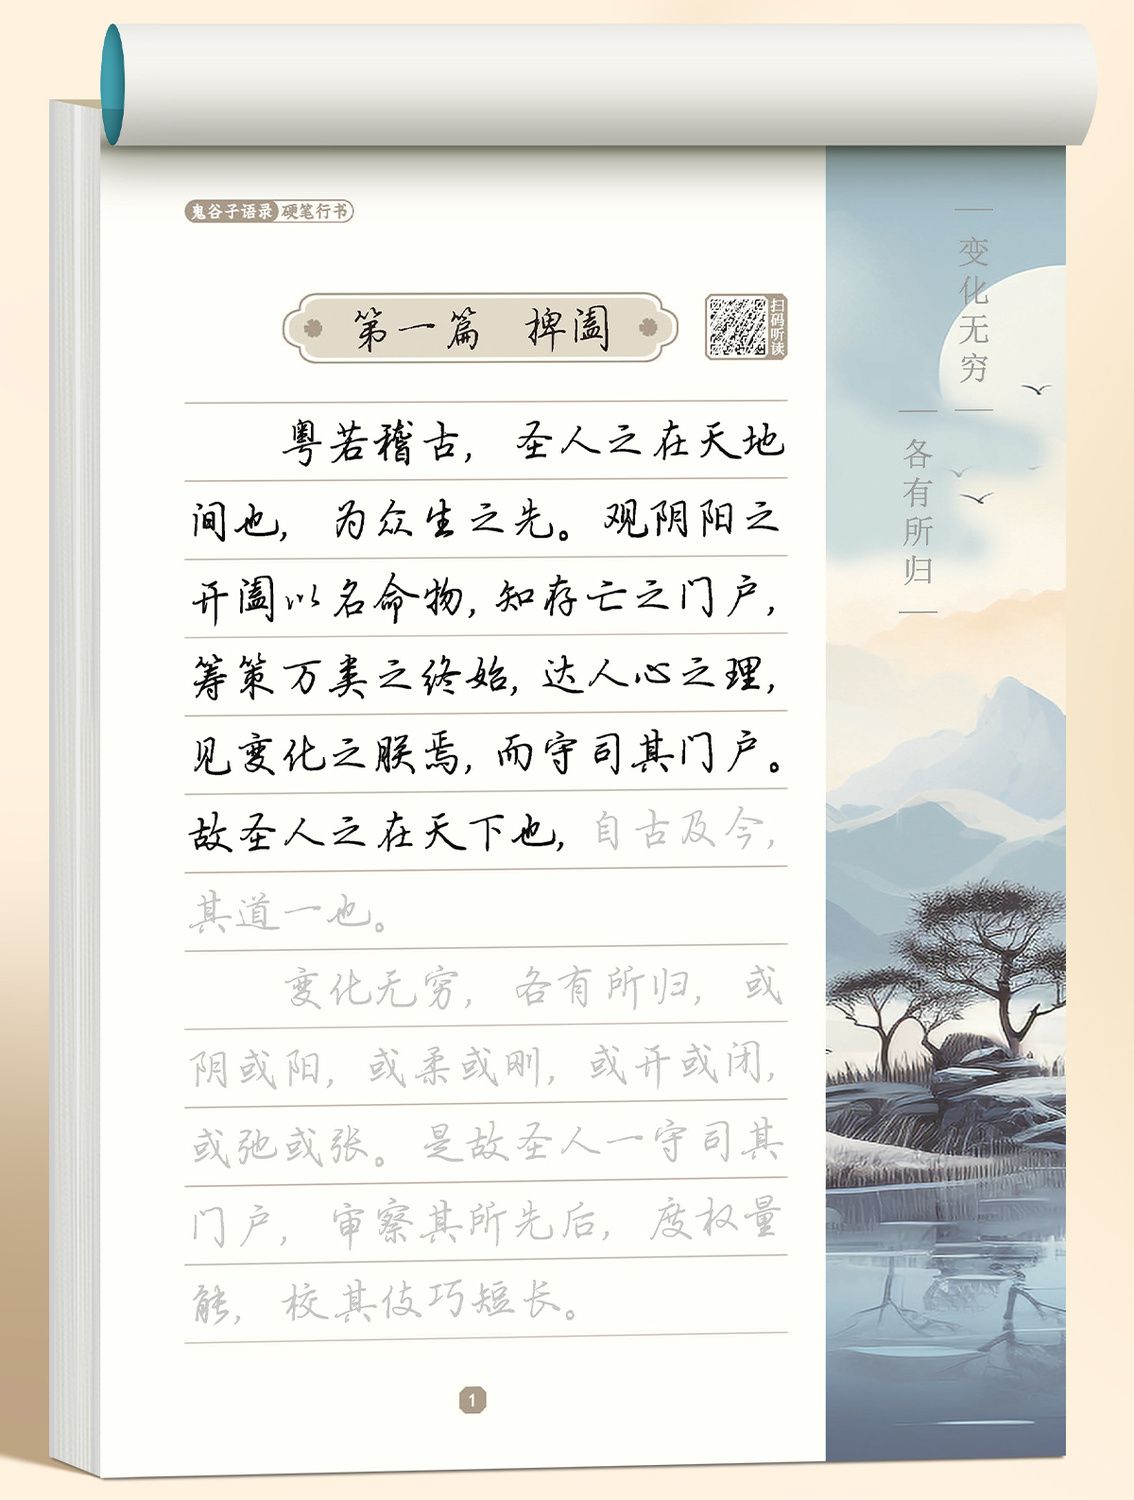 鬼谷子语录 硬笔行书
第一篇 捭阖
扫码听读
粤若稽古，圣人之在天地
间也，为众生之先。观阴阳之
开阖以名命物，知存亡之门户，
筹策万类之终始，达人心之理，
见变化之朕焉，而守司其门户。
故圣人之在天下也，自古及今，
其道一也。
变化无穷，各有所归，或
阴或阳，或柔或刚，或开或闭，
或弛或张。是故圣人一守司其
门户，审察其所先后，度权量
能，校其伎巧短长。
1
变化无穷
各有所归